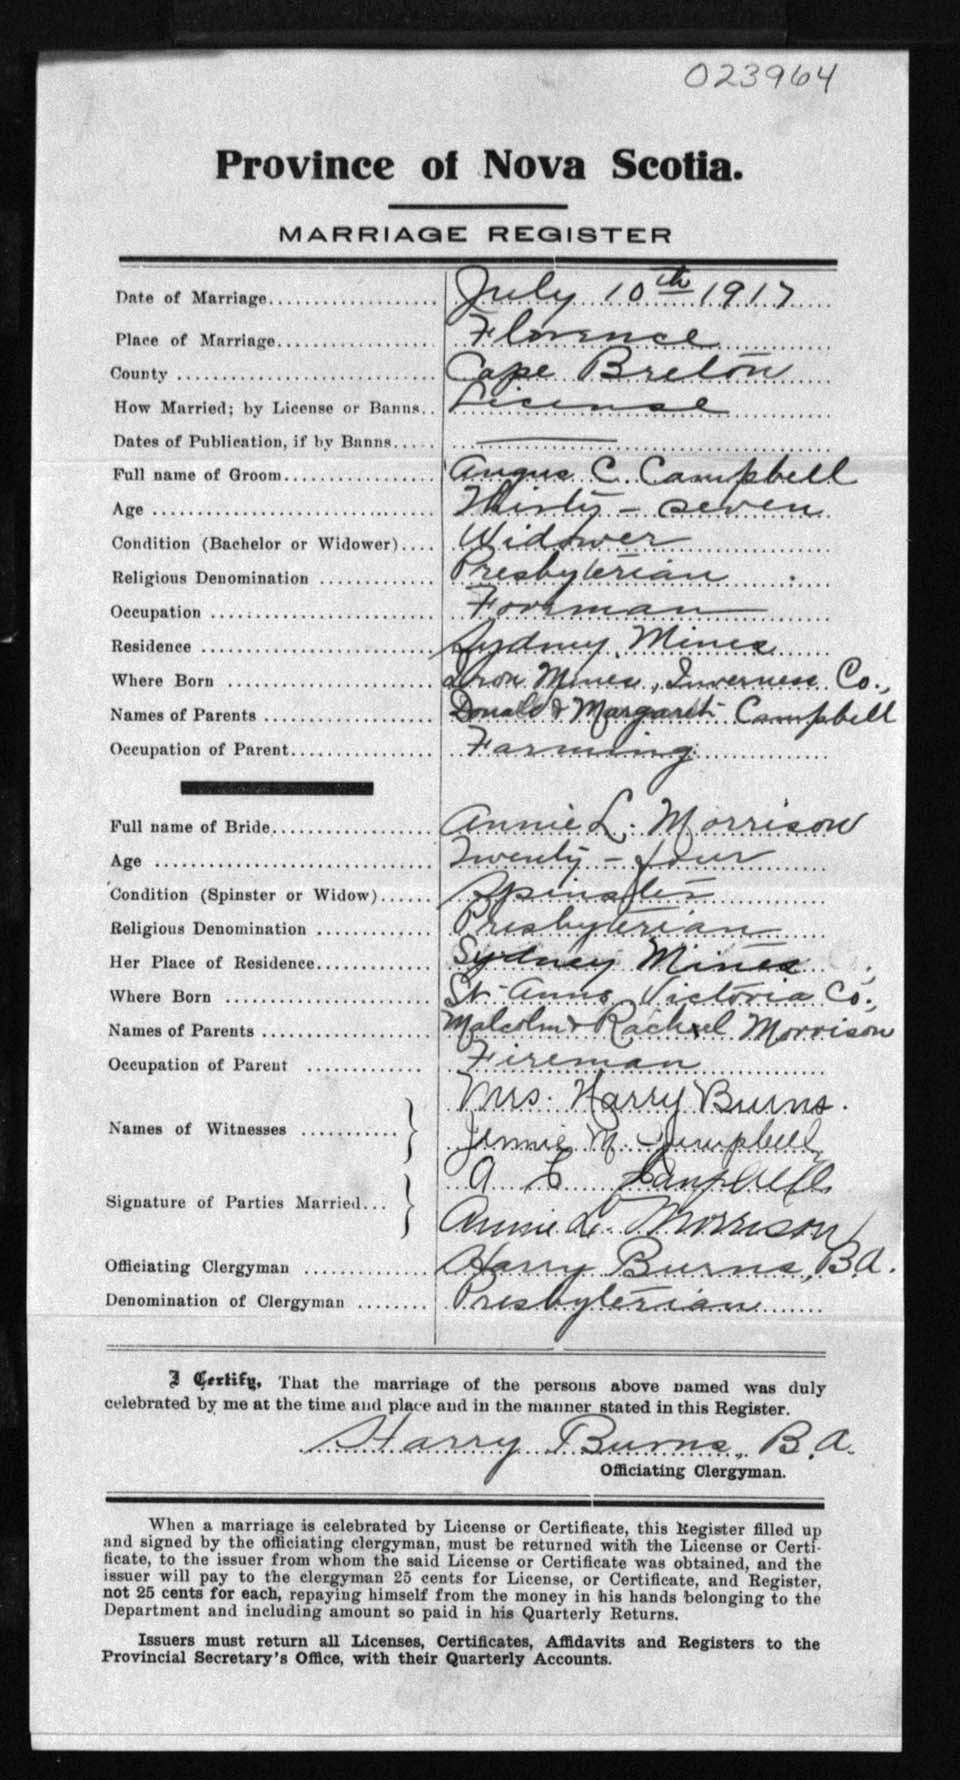 023964
Province of Nova Scotia.
MARRIAGE REGISTER
Date of Marriage.................... July 10th 1917
Place of Marriage................... Florence
County .............................. Cape Breton
How Married; by License or Banns.. License
Dates of Publication, if by Banns..... ———
Full name of Groom.................. Angus C. Campbell
Age ................................. Thirty - seven
Condition (Bachelor or Widower).... Widower
Religious Denomination ............. Presbyterian
Occupation .......................... Foreman
Residence ........................... Sydney Mines
Where Born ........................ Iron Mines, Inverness Co.,
Names of Parents .................... Donald & Margaret Campbell
Occupation of Parent................. Farming
Full name of Bride................... Annie L. Morrison
Age ................................. Twenty - four
Condition (Spinster or Widow)...... Spinster
Religious Denomination ............. Presbyterian
Her Place of Residence.............. Sydney Mines
Where Born ........................ St. Anns, Victoria Co.,
Names of Parents .................... Malcolm & Rachel Morrison
Occupation of Parent ............. Fireman
Names of Witnesses ........... } Mrs. Harry Burns.
Jennie M. Campbell
Signature of Parties Married... } A C Campbell
Annie L. Morrison
Officiating Clergyman .............. Harry Burns, B.A.
Denomination of Clergyman ........ Presbyterian
I Certify, That the marriage of the persons above named was duly
celebrated by me at the time and place and in the manner stated in this Register.
Harry Burns, B.A.
Officiating Clergyman.
When a marriage is celebrated by License or Certificate, this Register filled up
and signed by the officiating clergyman, must be returned with the License or Certi-
ficate, to the issuer from whom the said License or Certificate was obtained, and the
issuer will pay to the clergyman 25 cents for License, or Certificate, and Register,
not 25 cents for each, repaying himself from the money in his hands belonging to the
Department and including amount so paid in his Quarterly Returns.
Issuers must return all Licenses, Certificates, Affidavits and Registers to the
Provincial Secretary's Office, with their Quarterly Accounts.